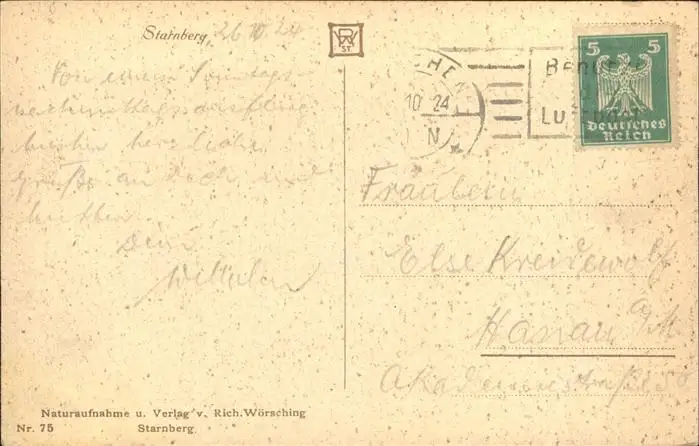 Starnberg, 26 10 24
Von einem Sonntags
nachmittagsausflug
herzliche
Grüße an Dich und
Dein
RW
ST.
CHEN
10 24
N
Benu
Lu
5 5
Deutsches
Reich
Fräulein
Else Kreidewolf
Hanau a/M
Akademiestraße 50
Naturaufnahme u. Verlag v. Rich. Wörsching
Nr. 75 Starnberg.